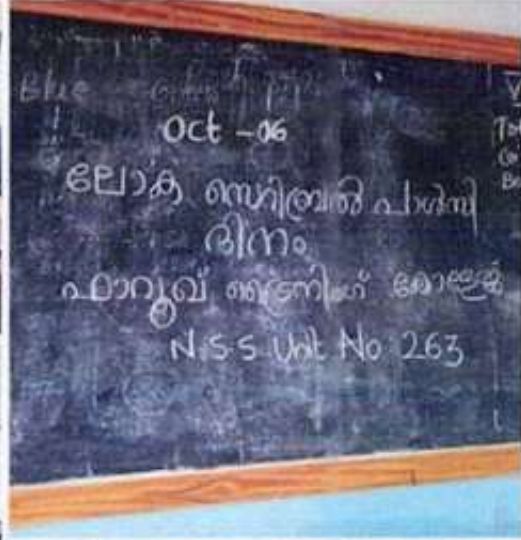 Blue
Oct - 06
ലോക സെറിബ്രൽ പാൾസി
ദിനം
ഫാറൂഖ് ട്രൈനിംഗ് കോളേജ്
N.S.S Unit No 263